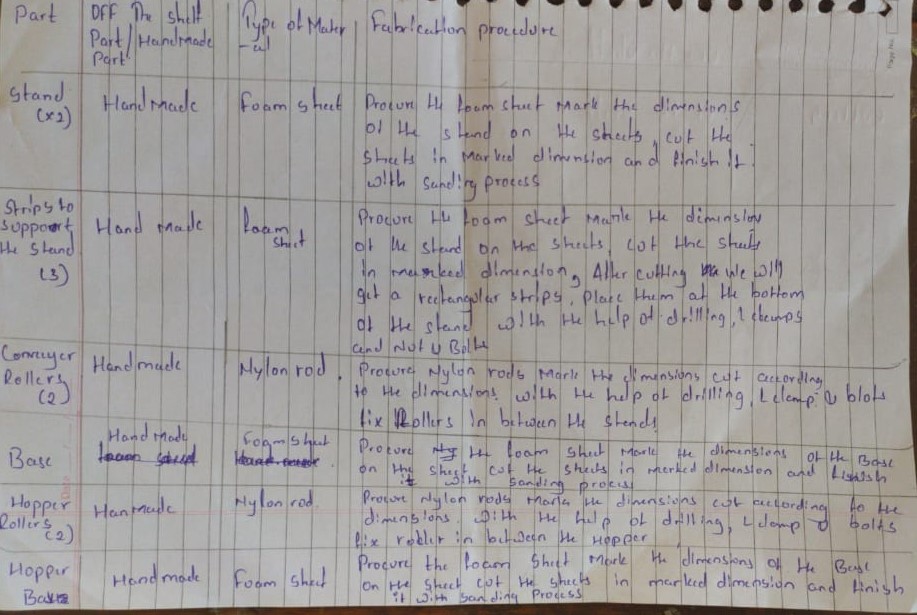 Part
OFF The shelf
Part/Handmade
Part
Type of Mater
-al
Fabrication procedure
Stand
(x2)
Hand Made
Foam sheet
Procure the foam sheet Mark the dimensions
of the stand on the sheets, cut the
sheets in Marked dimension and finish it.
with sanding process
Strips to
support
the stand
(3)
Hand made
foam
sheet
Procure the foam sheet Mark the dimension
of the stand on the sheets, cut the sheets
in marked dimension, After cutting we will
get a rectangular strips, place them at the bottom
of the stand with the help of drilling, L clamps
and Nut U Bolts
Conveyer
Rollers
(2)
Handmade
Nylon rod.
Procure Nylon rods Mark the dimensions cut according
to the dimensions, with the help of drilling, L clamp & blots
fix Rollers in between the stands
Base
Hand Made
Foam sheet
Procure the foam sheet Mark the dimensions of the Base
on the sheet cut the sheets in marked dimension and finish
it with sanding process
Hopper
Rollers
(2)
Hanmade
Nylon rod
Procure Nylon rods Mark the dimensions cut according to the
dimensions. With the help of drilling, L clamp & bolts
fix roller in between the Hopper
Hopper
Base
Handmade
Foam sheet
Procure the foam sheet Mark the dimensions of the Base
on the sheet cut the sheets in marked dimension and finish
it with sanding Process
Page No.
Date